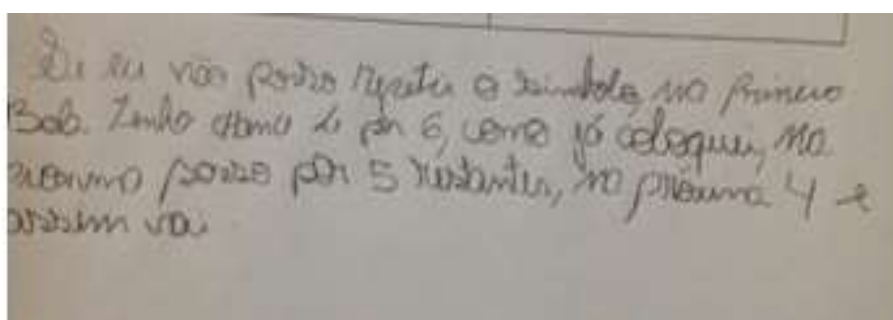 Se eu não posso repetir o símbolo, no primeiro
Bob. Tenho chance de pôr 6, como já coloquei, na
próxima posso pôr 5 restantes, na próxima 4 e
assim vai.